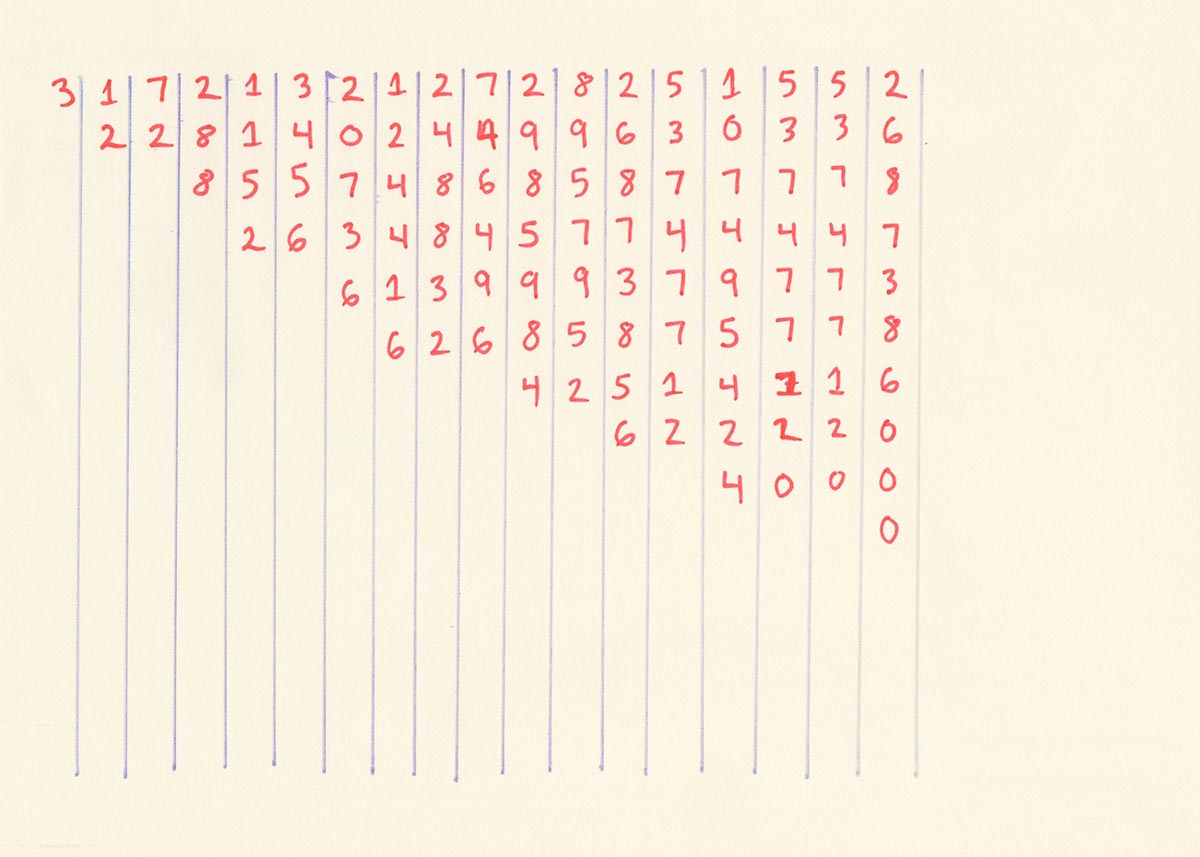 3 1 7 2 1 3 2 1 2 7 2 8 2 5 1 5 5 2
2 2 8 1 4 0 2 4 4 9 9 6 3 0 3 3 6
8 5 5 7 4 8 6 8 5 8 7 7 7 7 8
2 6 3 4 8 4 5 7 7 4 4 4 4 7
6 1 3 9 9 9 3 7 9 7 7 3
6 2 6 8 5 8 7 5 7 7 8
4 2 5 1 4 1 1 6
6 2 2 2 2 0
4 0 0 0
0